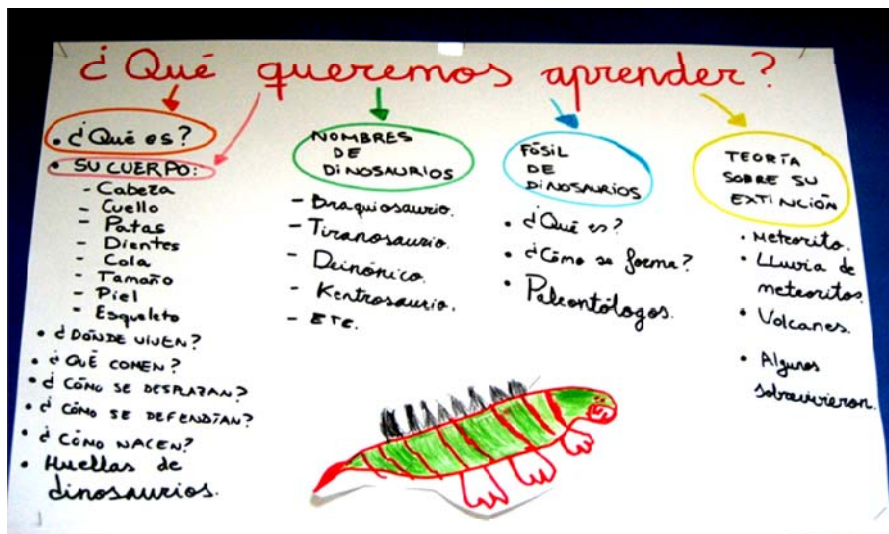 ¿Qué queremos aprender?
• ¿Qué es?
• SU CUERPO:
- Cabeza
- Cuello
- Patas
- Dientes
- Cola
- Tamaño
- Piel
- Esqueleto
• ¿DÓNDE VIVEN?
• ¿QUÉ COMEN?
• ¿CÓMO SE DESPLAZAN?
• ¿CÓMO SE DEFENDÍAN?
• ¿CÓMO NACEN?
• Huellas de
dinosaurios.
NOMBRES
DE
DINOSAURIOS
- Braquiosaurio.
- Tiranosaurio.
- Deinónico.
- Kentrosaurio.
- ETC.
FÓSIL
DE
DINOSAURIOS
• ¿Qué es?
• ¿Cómo se forma?
• Paleontólogos.
TEORÍA
SOBRE SU
EXTINCIÓN
• Meteorito.
• Lluvia de
meteoritos.
• Volcanes.
• Algunos
sobrevivieron.